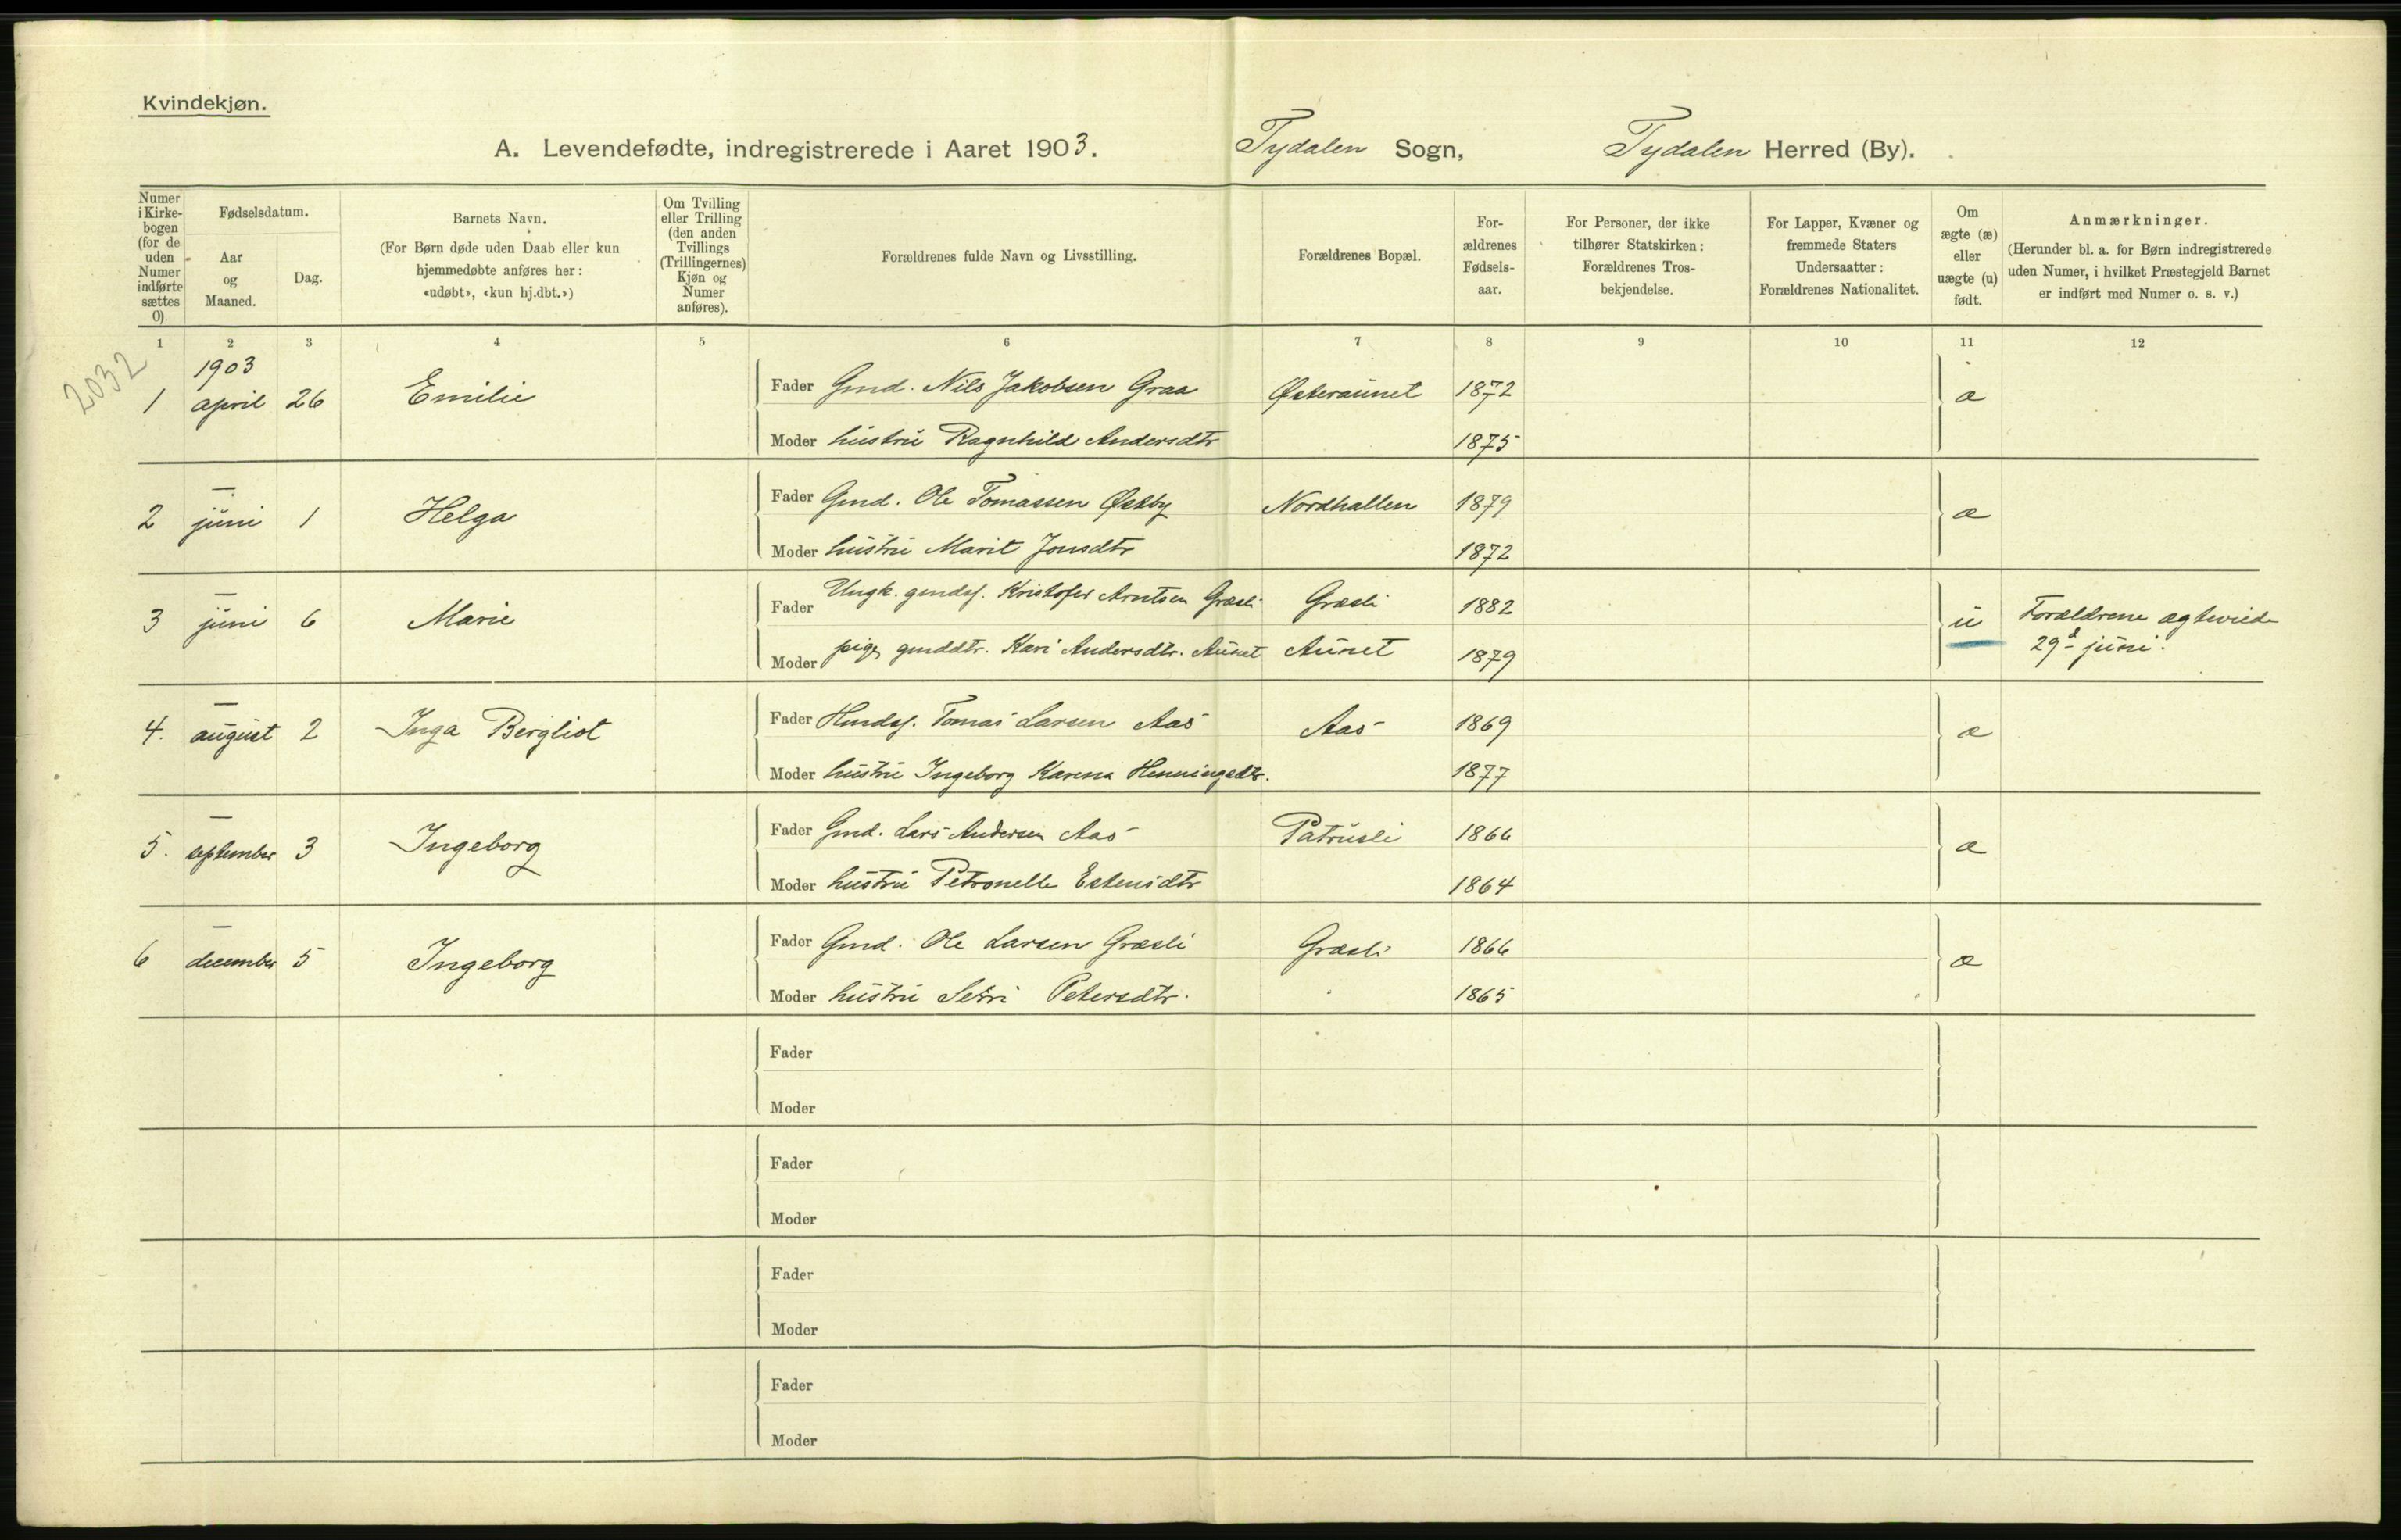 Kvindekjøn.
A. Levendefødte, indregistrerede i Aaret 1903. Tydalen Sogn, Tydalen Herred (By).
Numer i Kirke-bogen (for de uden Numer indførte sættes 0).
Fødselsdatum.
Aar og Maaned.
Dag.
Barnets Navn.
(For Børn døde uden Daab eller kun hjemmedøbte anføres her: «udøbt», «kun hj.dbt.»)
Om Tvilling eller Trilling (den anden Tvillings (Trillingernes) Kjøn og Numer anføres).
Forældrenes fulde Navn og Livsstilling.
Forældrenes Bopæl.
For-ældrenes Fødsels-aar.
For Personer, der ikke tilhører Statskirken: Forældrenes Tros-bekjendelse.
For Lapper, Kvæner og fremmede Staters Undersaatter: Forældrenes Nationalitet.
Om ægte (æ) eller uægte (u) født.
Anmærkninger.
(Herunder bl. a. for Børn indregistrerede uden Numer, i hvilket Præstegjeld Barnet er indført med Numer o. s. v.)
1 2 3 4 5 6 7 8 9 10 11 12
2032
1903
1 april 26 Emilie Fader Gmd. Nils Jakobsen Graa Østeraunet 1872 æ
Moder hustru Ragnhild Andersdtr 1875
—
2 juni 1 Helga Fader Gmd. Ole Tomassen Østby Nordhallen 1879 æ
Moder hustru Marit Jonsdtr 1872
—
3 juni 6 Marie Fader Ungk. gmds. Kristofer Arntsen Græsli Græsli 1882 u Forældrene ægteviede
Moder pige gmddtr. Kari Andersdtr. Aunet Aunet 1879 29d juni.
—
4. august 2 Inga Bergliot Fader Hmds. Tomas Larsen Aas Aas 1869 æ
Moder hustru Ingeborg Karena Henningsdtr. 1877
—
5. september 3 Ingeborg Fader Gmd. Lars Andersen Aas Patrusli 1866 æ
Moder hustru Petronelle Estensdtr 1864
—
6 december 5 Ingeborg Fader Gmd. Ole Larsen Græsli Græsli 1866 æ
Moder hustru Petersdtr. 1865
Fader
Moder
Fader
Moder
Fader
Moder
Fader
Moder